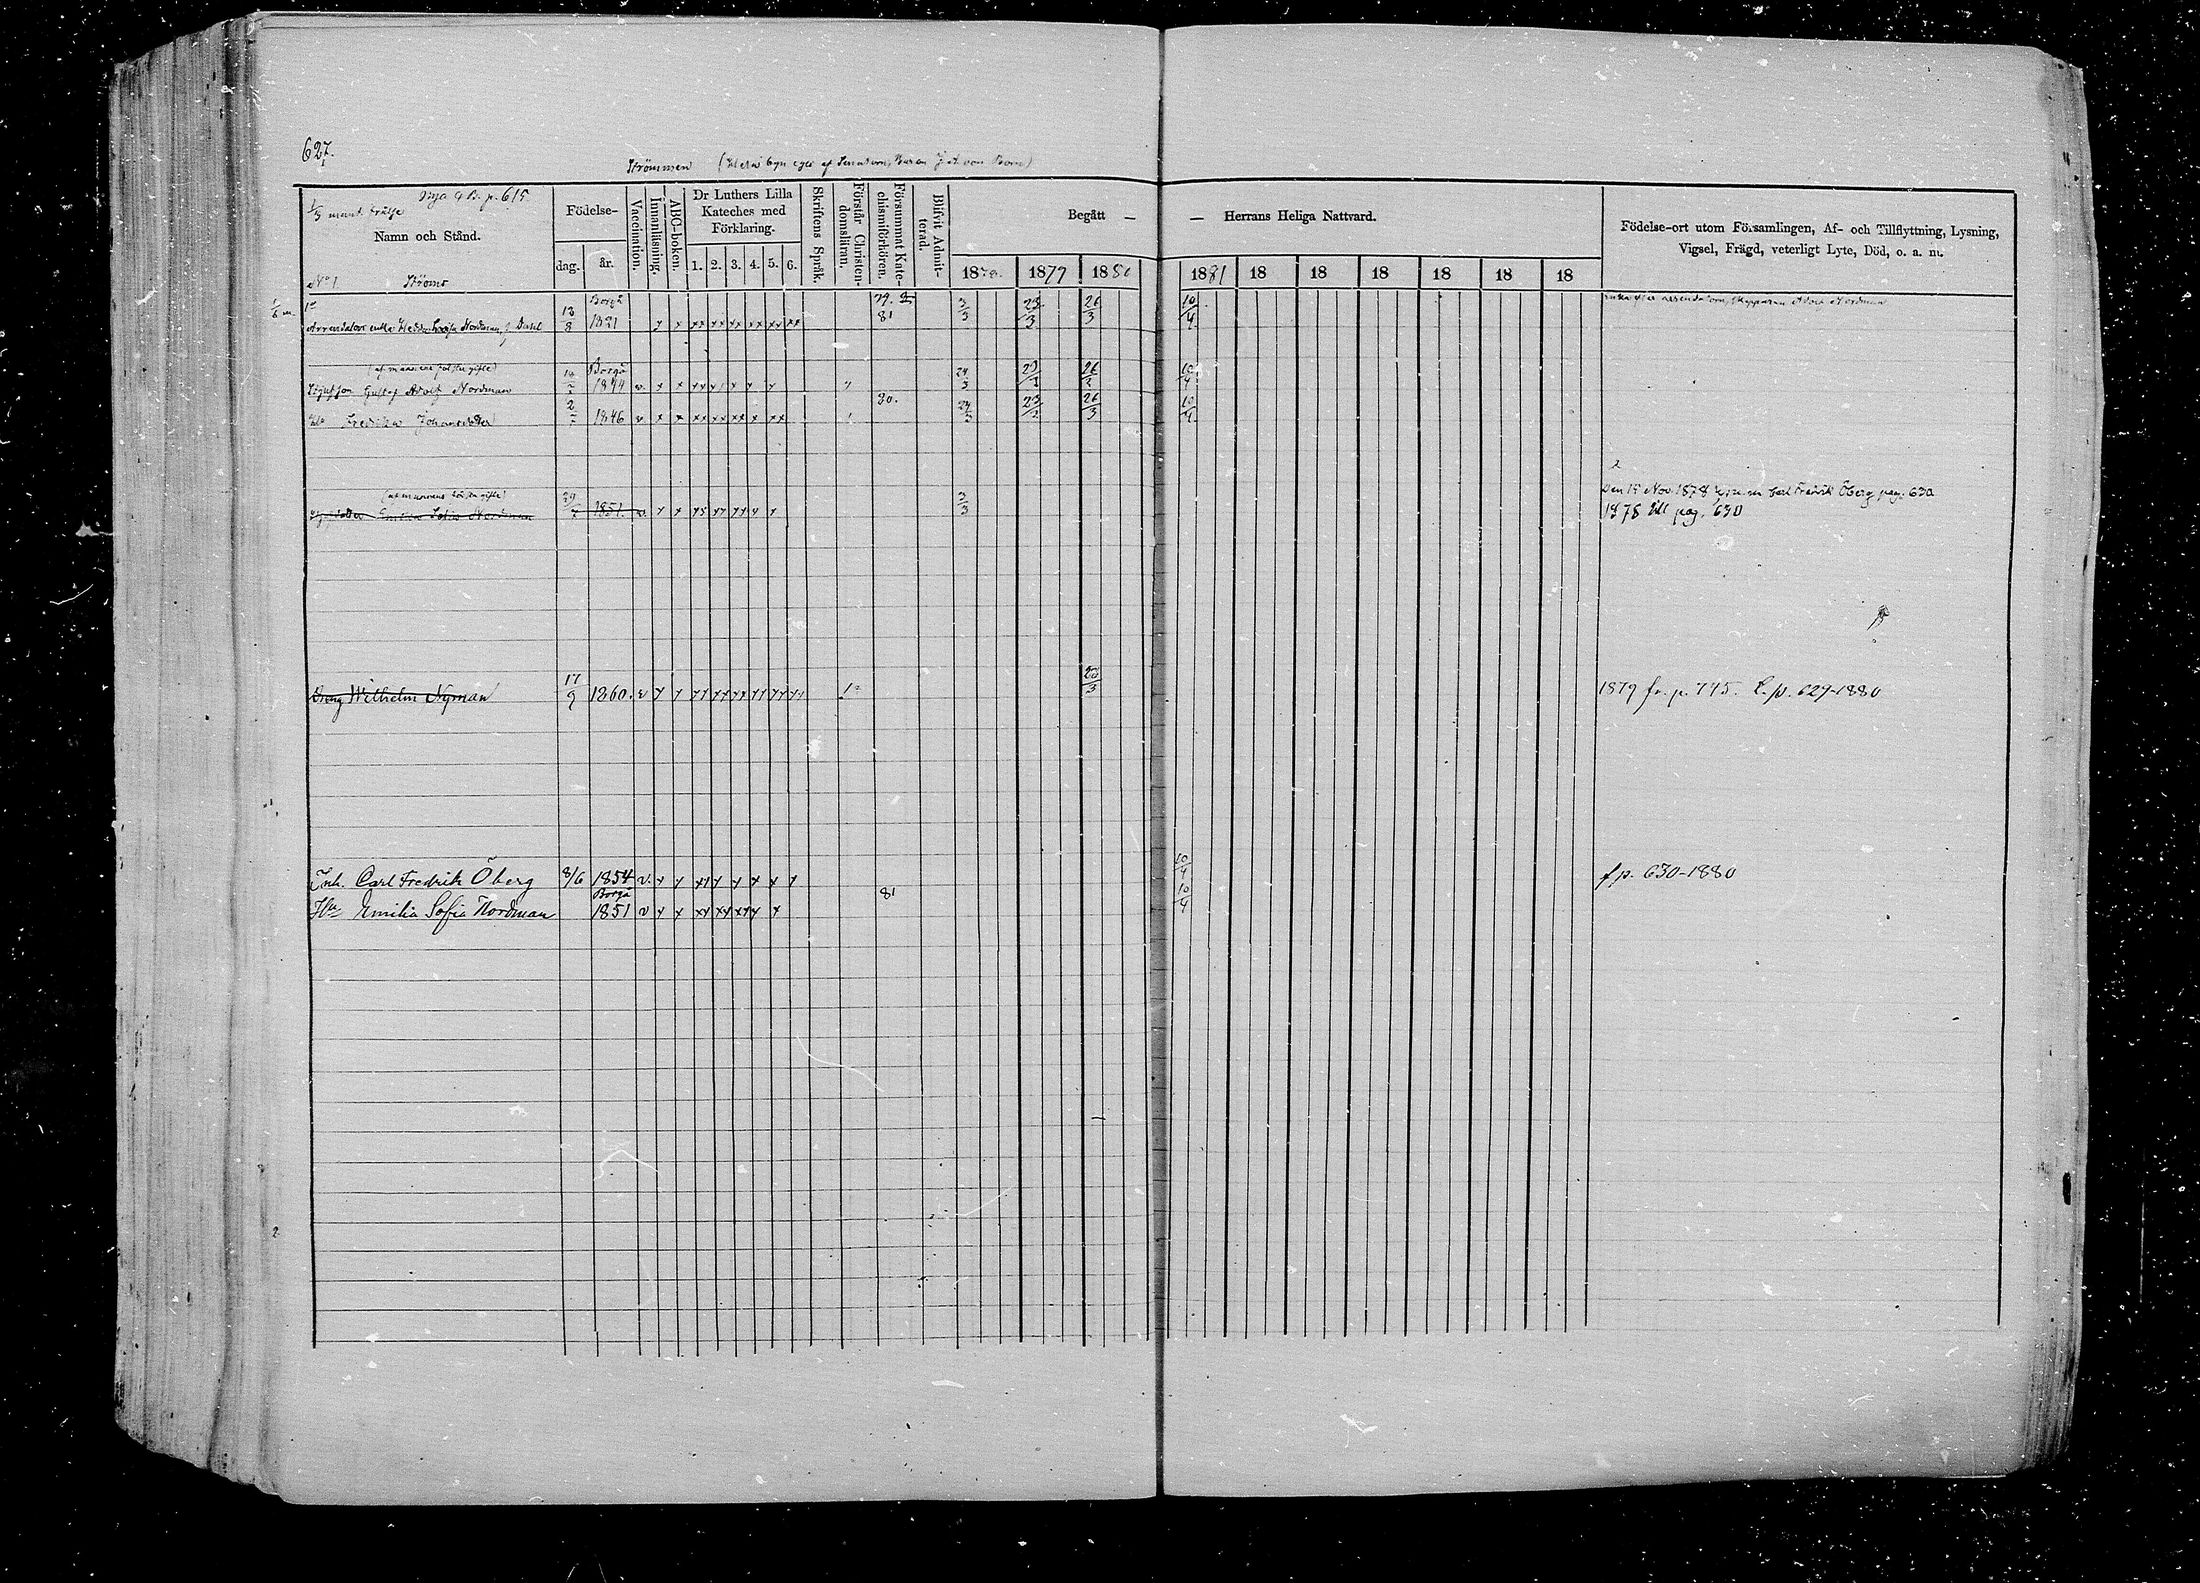 627.
Strömmen (Hela byn eges af Senatorn, Baron J. A. von Born)
1/3 mant. frälse
p. 615
Namn och Stånd.
N:o 1 Ströms
Födelse-
dag. år.
Vaccination.
Innanläsning.
ABC-boken.
Dr Luthers Lilla
Kateches med
Förklaring.
1. 2. 3. 4. 5. 6.
Skriftens Språk.
Förstår Christen-
domsläran.
Försummat Kate-
chismiförhören.
Blifvit Admit-
terad.
Begått —
1878. 1879 1880
— Herrans Heliga Nattvard.
1881 18 18 18 18 18 18
Födelse-ort utom Församlingen, Af- och Tillflyttning, Lysning,
Vigsel, Frägd, veterligt Lyte, Död, o. a. m.
1/6 m.
Arrendators enka Hedda Lovisa Nordman, 13/8 Borgå 1821 79. 81 3/3 23/3 26/3 10/4
enka efter arrendatorn, skepparen Adolf Nordman
(af mannens förra gifte)
Gustaf Adolf Nordman Borgå 1844 v 24/3 23/3 26/3 10/4
H:o Fredrika Johansdotter 1846 v 80. 24/3 23/3 26/3 10/4
(af mannens gifte)
Emilia Sofia Nordman 1851. v. 3/3
Den 15 Nov. 1878 Carl Fredrik Öberg pag. 630
1878 till pag. 630
Dräng Wilhelm Nyman 17/9 1860. v 28/3
1879 fr. p. 745. t. p. 629-1880
Inh. Carl Fredrik Öberg 8/6 1854 v. 10/4
f. p. 630-1880
Hu Emilia Sofia Nordman Borgå 1851 v 81 10/4